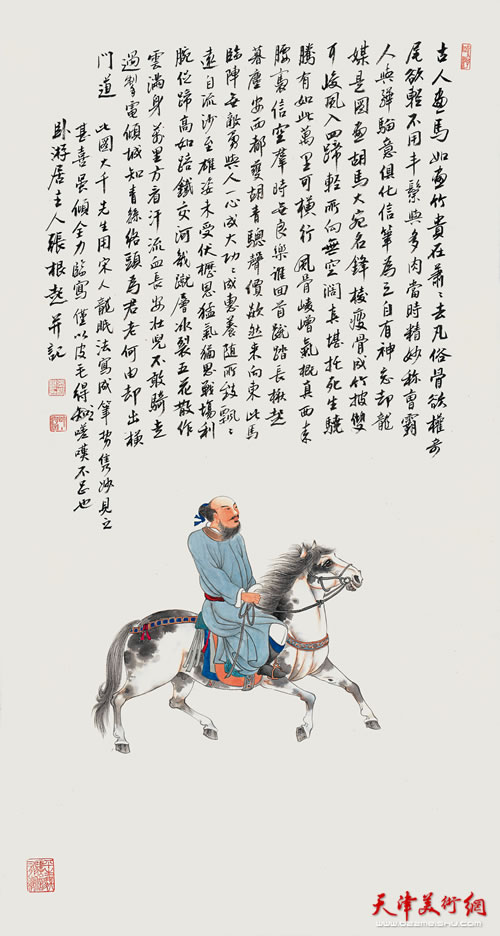 古人畫馬如畫竹貴在蕭々去凡俗骨欲權奇
尾欲輕不用丰鬃與多肉當時精妙称曹霸
人與驊騮意俱化信筆為之自有神忘却龍
媒是圖畫胡馬大宛名鋒棱瘦骨成竹披雙
耳峻風入四蹄輕所向無空闊真堪托死生驍
騰有如此萬里可横行風骨崚嶒氣概真西来
騕褭信空羣時無良樂誰回首蹴踏長楸起
暮塵安西都護胡青驄聲價歘然来向東此馬
臨陣無敵勇與人一心成大功々成惠養随所致飄々
遠自流沙至雄姿未受伏櫪恩猛氣猶思戰場利
腕促蹄高如踣鐵交河幾蹴層冰裂五花散作
雲滿身萬里方看汗流血長安壯兒不敢騎走
過掣電傾城知青絲絡頭為君老何由却出横
門道
此圖大千先生用宋人龍眠法寫成筆勢雋妙見之
甚喜傾全力臨寫僅以皮毛得知嗟嘆不已也
卧游居主人張根起并記
天津美術網
www.022meishu.com